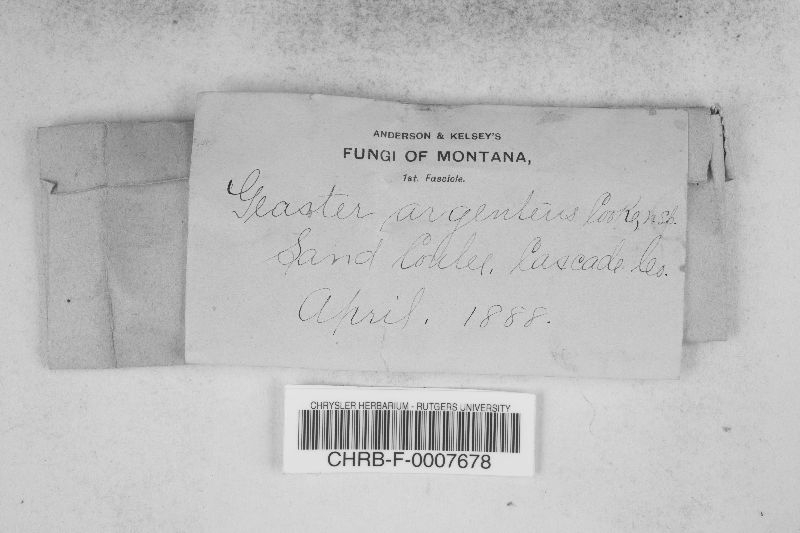 ANDERSON & KELSEY'S
FUNGI OF MONTANA,
1st. Fascicle.
Geaster argenteus Cooke, n.sp.
Sand Coulee, Cascade Co.
April. 1888.
CHRYSLER HERBARIUM - RUTGERS UNIVERSITY
CHRB-F-0007678